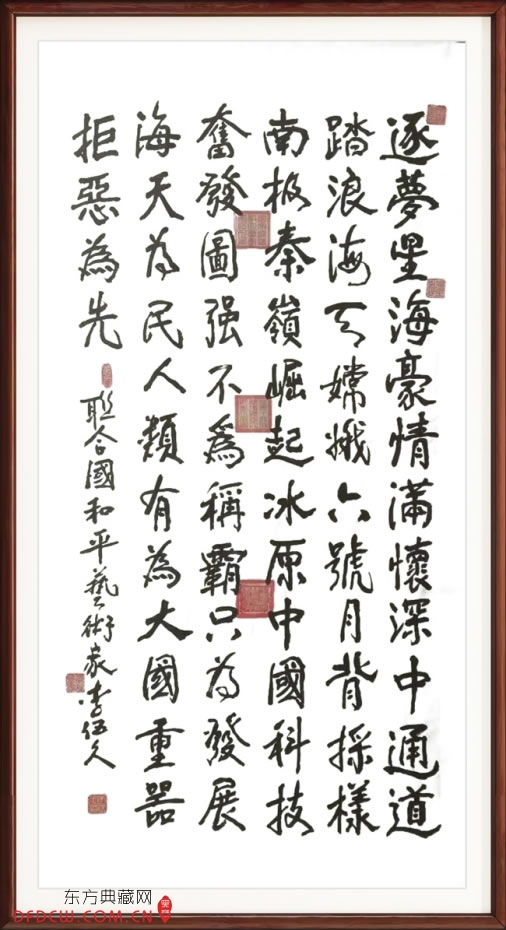 逐夢星海豪情滿懷深中通道
踏浪海天嫦娥六號月背採樣
南极秦嶺崛起冰原中國科技
奮發圖强不為稱霸只为發展
海天为民人類有為大國重器
拒惡為先
聯合國和平藝術家李伍久
东方典藏网
DFDCW.COM.CN